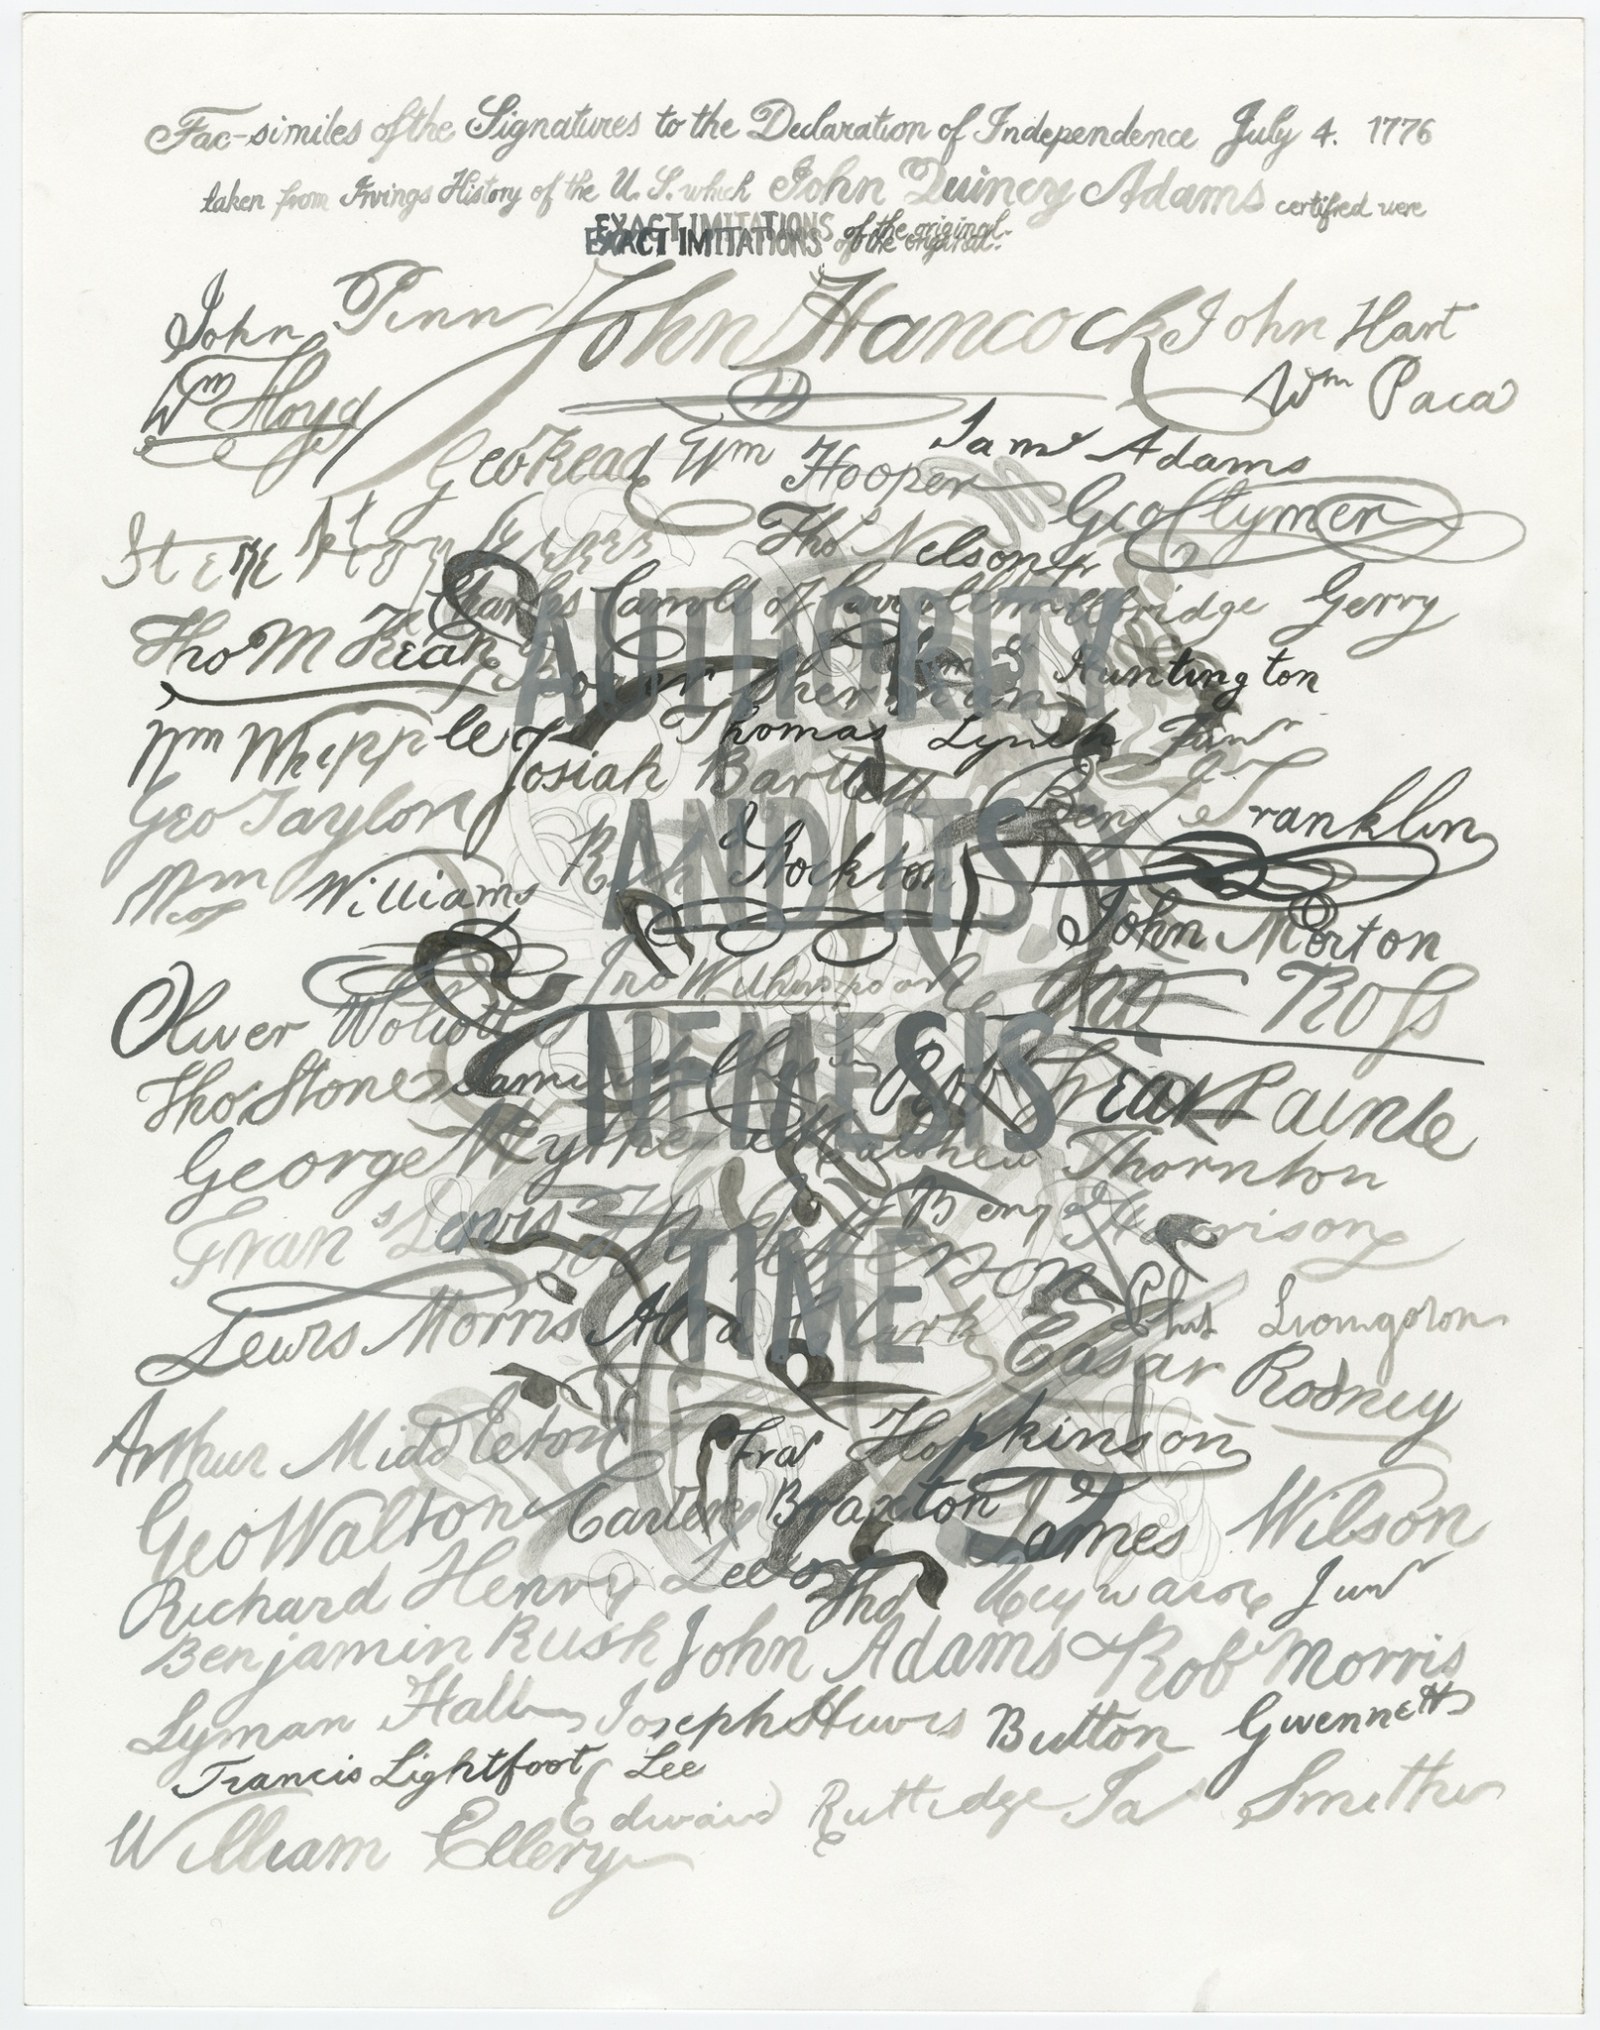 Fac-similes of the Signatures to the Declaration of Independence July 4. 1776
taken from Irvings History of the U. S. which John Quincy Adams certified were
EXACT IMITATIONS of the original.
EXACT IMITATIONS of the original.
John Penn John Hancock John Hart
Wm Floyd Wm Paca
Geo Read Wm Hooper Sam Adams
Step Hopkins Tho Nelson jr Geo Clymer
Charles Carroll of Carrollton Elbridge Gerry
Tho M Kean Roger Sherman Sam Huntington
AUTHORITY
Wm Whipple Josiah Bartlett Thomas Lynch Junr
Geo Taylor Benj Franklin
AND ITS
Wm Williams Richd Stockton John Morton
Oliver Wolcott Jno Witherspoon Geo Ross
NEMESIS
Tho Stone Samuel Chase Robt Treat Paine
George Wythe Matthew Thornton
Frans Lewis Th Jefferson Benj Harrison
TIME
Lewis Morris Abra Clark Phil Livingston
Cæsar Rodney
Arthur Middleton Fras Hopkinson
Geo Walton Carter Braxton James Wilson
Richard Henry Lee Thos Heyward Junr
Benjamin Rush John Adams Robt Morris
Lyman Hall Joseph Hewes Button Gwennett
Francis Lightfoot Lee
William Ellery Edward Rutledge Jas Smith